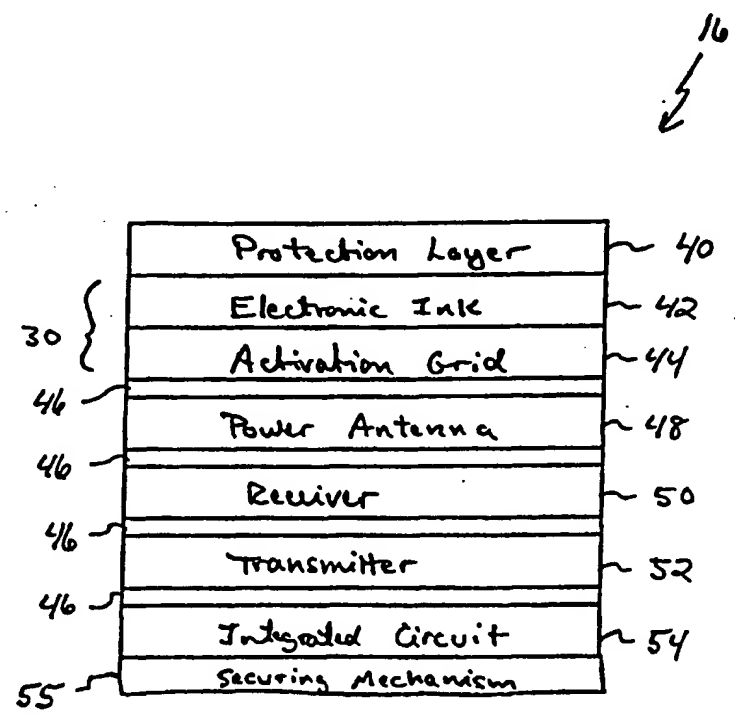 16
Protection Layer 40
Electronic Ink 42
30
Activation Grid 44
46
Power Antenna 48
46
Receiver 50
46
Transmitter 52
46
Integrated Circuit 54
55 Securing Mechanism